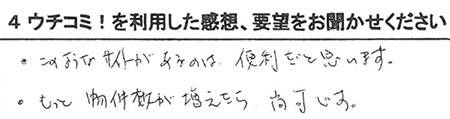 4 ウチコミ！を利用した感想、要望をお聞かせください
・このようなサイトがあるのは、便利だと思います。
・もっと物件数が増えたら、尚可です。